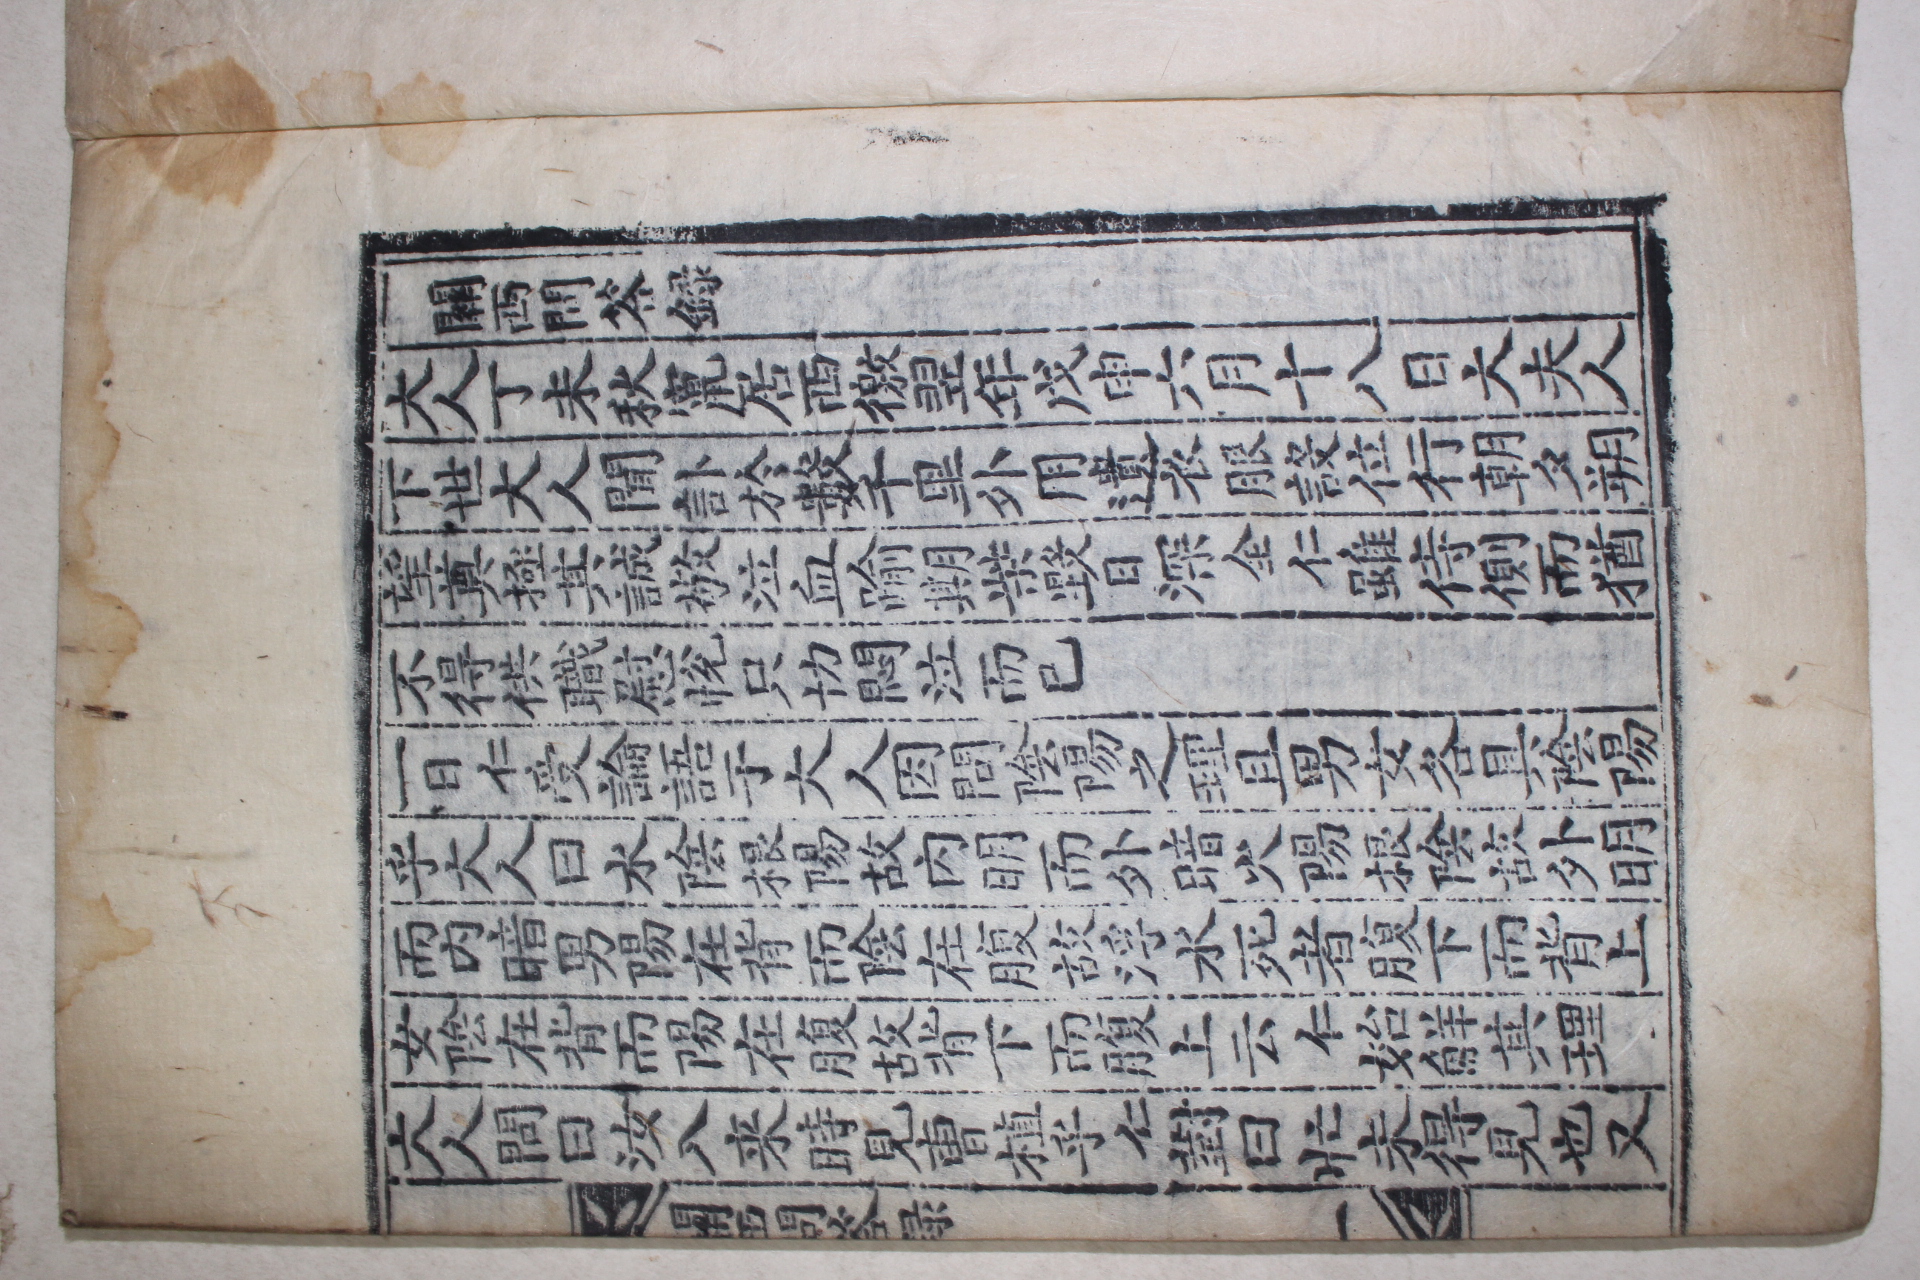 關西問答録
大人丁未秋竄居西徼翌年戊申六月十八日大夫人
下世大人聞訃於數千里外用遺衣服設位行朝夕朔
望奠極其誠敬泣血踰期柴毀日深全仁雖侍側而猶
不得供職慰悅只切悶泣而已
一日仁受論語于大人因問陰陽之理且男女各具陰陽
乎大人曰水陰根陽故内明而外暗火陽根陰故外明
而内暗男陽在背而陰在腹故浮水死者腹下而背上
女陰在背而陽在腹故背下而腹上云仁始解其理
大人問曰汝入来時見曺植乎仁對曰忙未得見也又
關西問答録
一